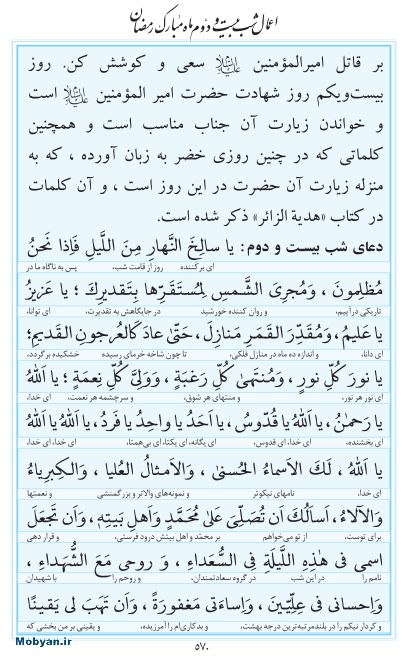 اعمال شب بیست و دوّم ماه مبارک رمضان
بر قاتل امیرالمؤمنین علیه‌السلام سعی و کوشش کن. روز
بیست‌ویکم روز شهادت حضرت امیر المؤمنین علیه‌السلام است
و خواندن زیارت آن جناب مناسب است و همچنین
کلماتی که در چنین روزی خضر به زبان آورده ، که به
منزله زیارت آن حضرت در این روز است ، و آن کلمات
در کتاب «هدیة الزائر» ذکر شده است.
دعای شب بیست و دوم: یا سالِخَ النَّهارِ مِنَ اللَّیلِ فَاِذا نَحنُ
ای برکننده روز از قامت شب، پس به ناگاه ما در
مُظلِمونَ ، وَمُجرِیَ الشَّمسِ لِمُستَقَرِّها بِتَقدیرِكَ ؛ یا عَزیزُ
تاریکی درآییم، و روان کننده خورشید در جایگاهش به تقدیرت، ای توانا،
یا عَلیمُ، وَمُقَدِّرَ القَمَرِ مَنازِلَ ، حَتّىٰ عادَ كَالعُرجونِ القَدیمِ؛
ای دانا، و اندازه ده ماه در منازل فلکی، تا چون شاخه خرمای رسیده خشکیده برگردد،
یا نورَ كُلِّ نورٍ ، وَمُنتَهىٰ كُلِّ رَغبَةٍ ، وَوَلِیَّ كُلِّ نِعمَةٍ ؛ یا اَللهُ
ای نور هر نور، و منتهای هر شوق، و سرچشمه هر نعمت، ای خدا،
یا رَحمٰنُ، یا اَللهُ یا قُدّوسُ ، یا اَحَدُ یا واحِدُ یا فَردُ، یا اَللهُ یا اَللهُ
ای بخشنده، ای خدا، ای قدوس، ای یگانه، ای یکتا، ای بی‌همتا، ای خدا، ای خدا،
یا اَللهُ ، لَكَ الاَسماءُ الحُسنىٰ، وَالاَمثالُ العُلیا ، وَالكِبرِیاءُ
ای خدا، نامهای نیکوتر و نمونه‌های والاتر و بزرگمنشی و نعمتها
وَالآلاءُ، اَساَلُكَ اَن تُصَلِّیَ عَلىٰ مُحَمَّدٍ وَاَهلِ بَیتِهٖ، وَاَن تَجعَلَ
برای توست، از تو می‌خواهم بر محمّد و اهل بیتش درود فرستی، و قرار دهی
اسمی فی هٰذِهِ اللَّیلَةِ فِی السُّعَداءِ ، وَ روحی مَعَ الشُّهَداءِ ،
نامم را در این شب در گروه سعادتمندان، و روحم را با شهیدان
وَاِحسانی فی عِلِّیّینَ ، وَاِساءَتی مَغفورَةً ، وَاَن تَهَبَ لی یَقینًا
و کردار نیکم را در بلندمرتبه‌ترین درجه بهشت، و بدکاری‌ام را آمرزیده، و یقینی بر من بخشی که
۵۷۰
Mobyan.ir